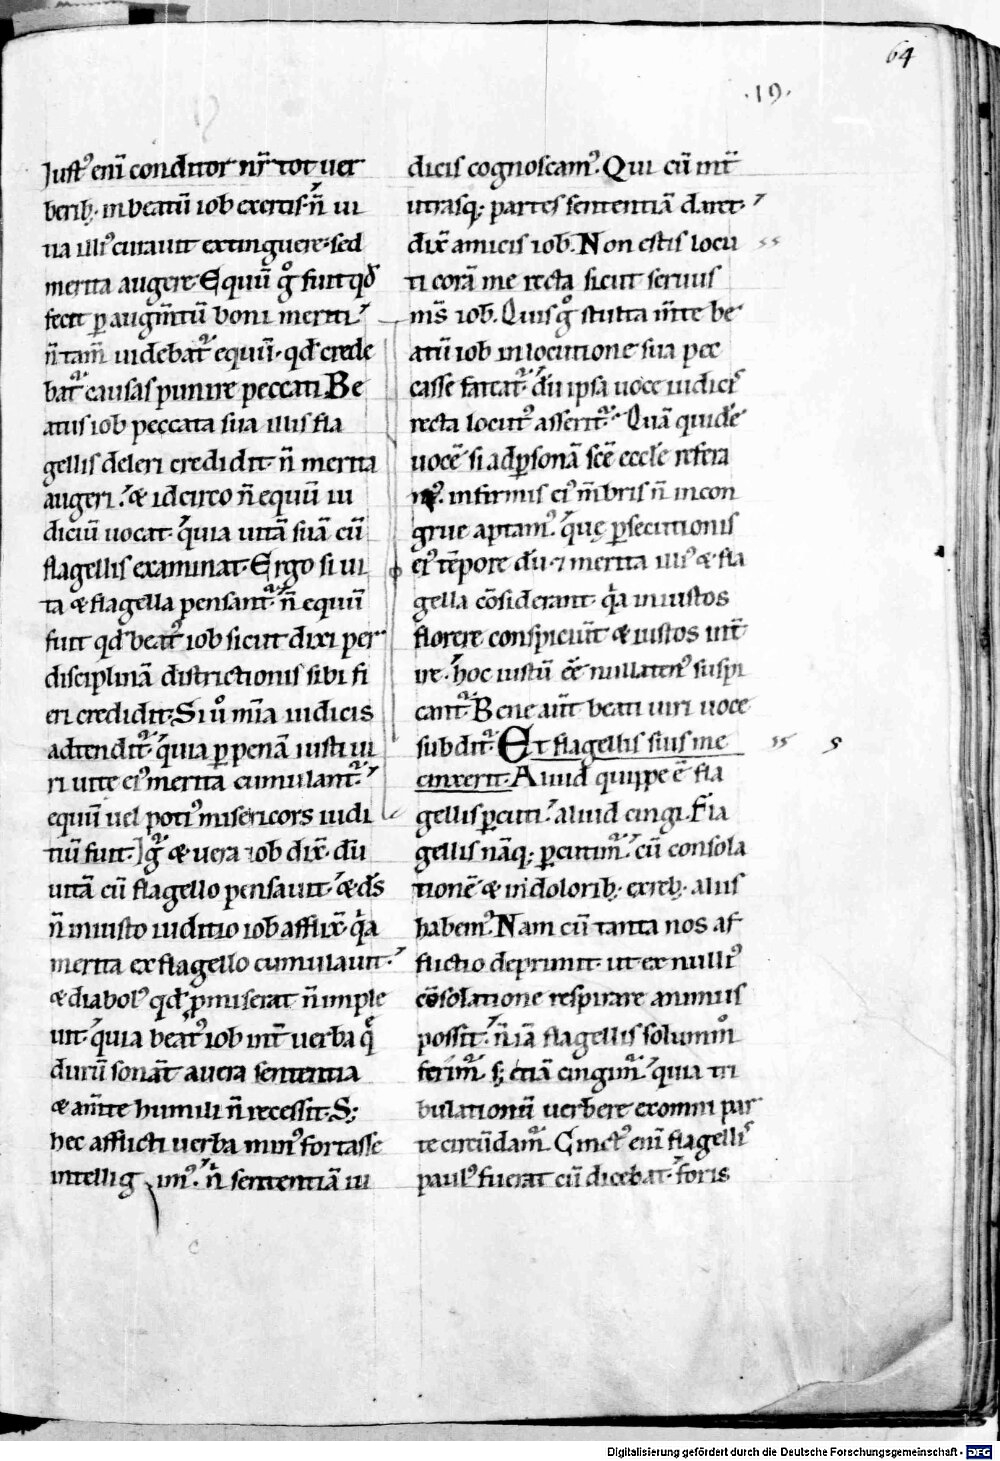 64
.19.
Iustꝰ eni̅ conditor nr̅ tot uer
berib; in beatu̅ iob exertis. n̅ ui
ua illiꝰ curauit extinguere. sed
merita augere. Equu̅ gͦ fuit qd̅
fecit p̲ augm̅tu̅ boni meriti.
n̅ tam̅ uidebat᷑ equu̅. qd̅ crede
bat᷑ causas punire peccati. Be
atus iob peccata sua illis fla
gellis deleri credidit. n̅ merita
augeri. & idcirco n̅ equu̅ iu
diciu̅ uocat. quia uita̅ sua̅ cu̅
flagellis examinat. Ergo si ui
ta & flagella pensant᷑. n̅ equu̅
fuit qd̅ beatꝰ iob sicut dixi per
disciplina̅ districtionis sibi fi
eri credidit. Si uͦ mia̅ iudicis
adtendit᷑. quia p̲ pena̅ iusti ui
ri uite eiꝰ merita cumulant᷑.
equu̅ uel potiꝰ misericors iudi
tiu̅ fuit. g᷑ & uera iob dix̅. du̅
uita̅ cu̅ flagello pensauit. & ds̅
n̅ iniusto iuditio iob afflix̅. qͥa
merita ex flagello cumulauit.
& diabolꝰ qd̅ p̲miserat n̅ imple
uit. quia beatꝰ iob int̅ uerba qͣ
duru̅ sona̅t a uera sententia
& am̅te humili n̅ recessit. S;
hec afflicti uerba minꝰ fortasse
intellig imꝰ. n̅ sententia̅ iu
dicis cognoscamꝰ. Qui cu̅ int̅
utrasq; partes sententia̅ daret.
dix̅ amicis iob. Non estis locu
ti cora̅ me recta sicut seruus
ms̅ iob. Quis gͦ stulta m̅te be
atu̅ iob in locutione sua pec
casse fateat᷑. du̅ ipsa uoce iudicis
recta locutꝰ asserit᷑. Qua̅ quide̅
uoce̅ si ad p̲sona̅ sce̅ eccle̅ refera
mꝰ. infirmis eiꝰ m̅bris n̅ incon
grue aptamꝰ. quę p̲secutionis
eiꝰ te̅pore du̅ & merita illiꝰ & fla
gella co̅siderant. qͥa iniustos
florere conspiciu̅t & iustos int̅
ire. hoc iustu̅ e̅e nullatenꝰ suspi
cant᷑. Bene aut̅ beati uiri uoce
subdit᷑. Et flagellis suis me
cinxerit. Aliud quippe e̅ fla
gellis p̲cuti. aliud cingi. Fla
gellis na̅q; p̲cutim᷑. cu̅ consola
tione̅ & in dolorib; ex reb; aliis
habemꝰ. Nam cu̅ tanta nos af
flictio deprimit. ut ex nulliꝰ
co̅solatione respirare animus
possit. n̅ ia̅ flagellis solummͦ
ferim᷑. s; etia̅ cingim᷑. quia tri
bulationu̅ uerbere ex omni par
te circu̅dam᷑. Cinctꝰ eni̅ flagellis
paulꝰ fuerat cu̅ dicebat. foris
Digitalisierung gefördert durch die Deutsche Forschungsgemeinschaft - DFG